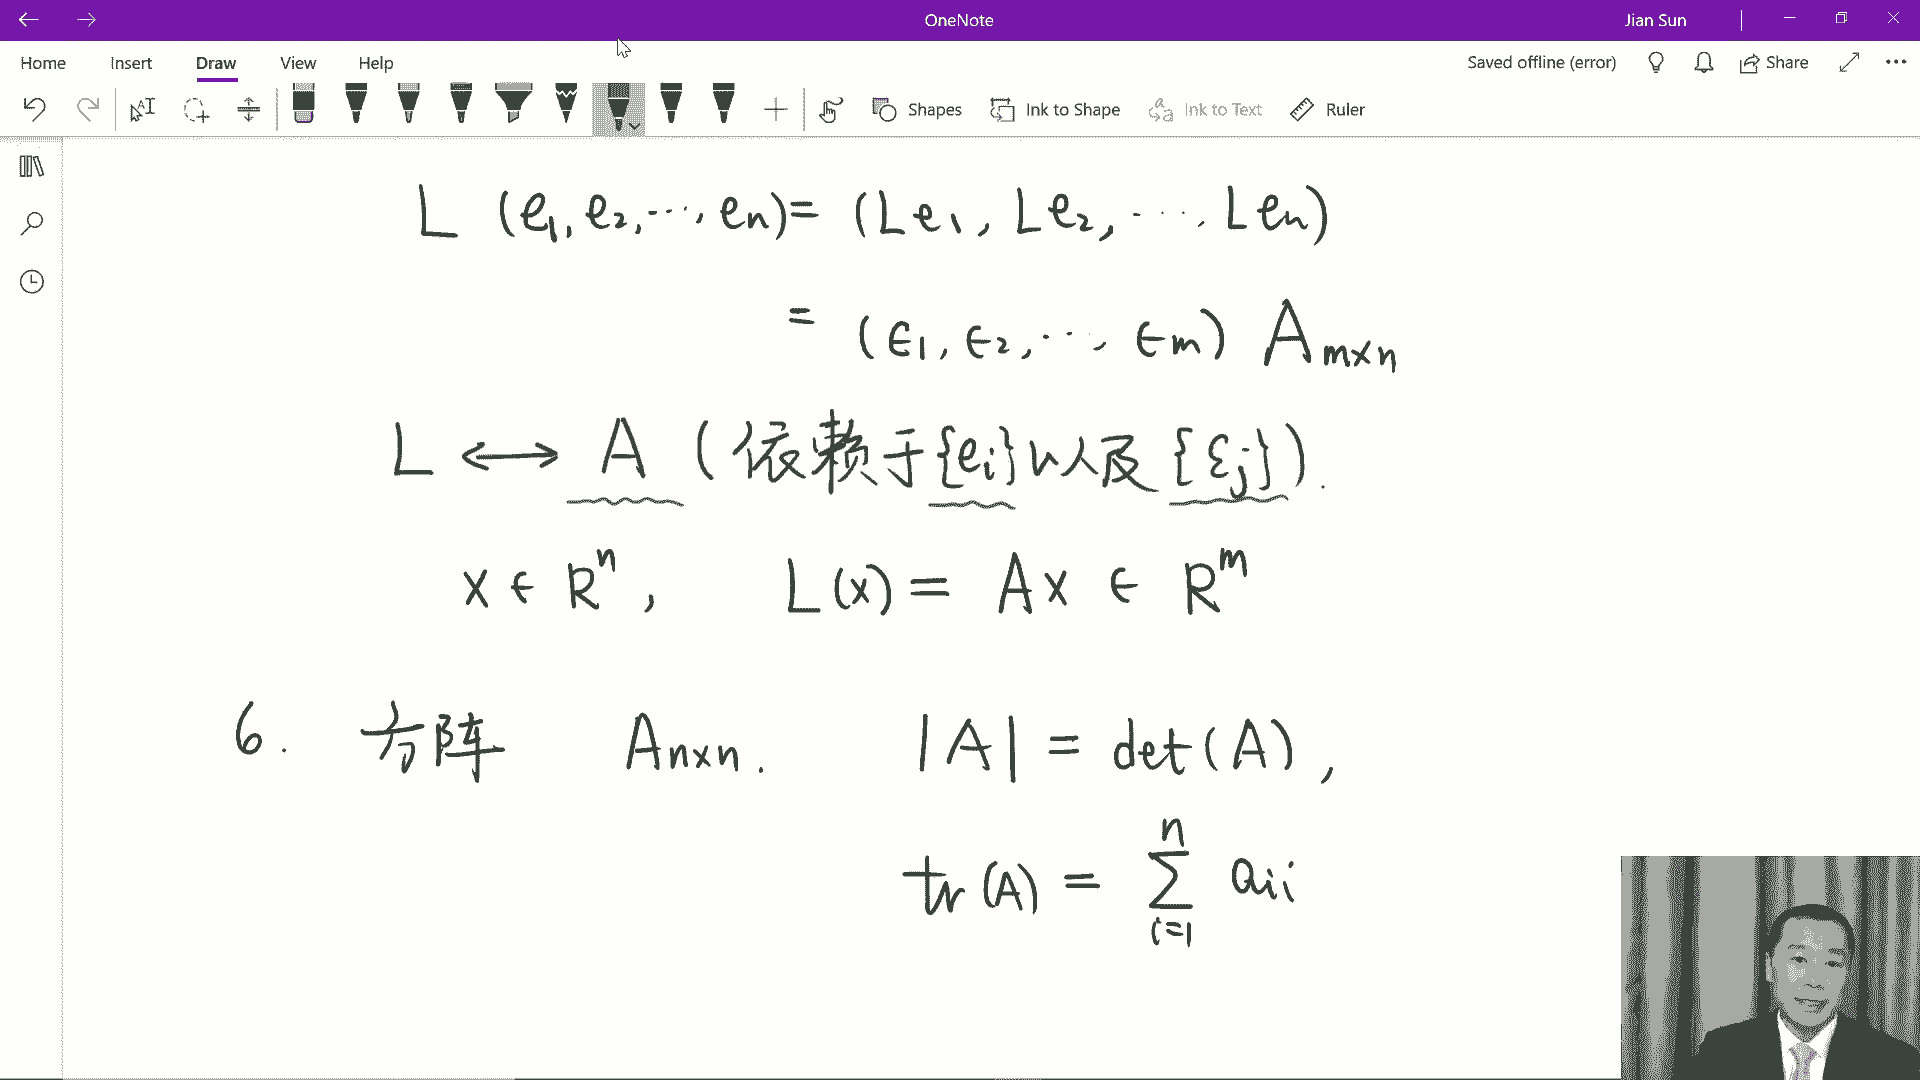 OneNote
Jian Sun
Home Insert Draw View Help
Saved offline (error) Share
Shapes Ink to Shape Ink to Text Ruler
L (e₁, e₂, ⋯, eₙ) = (Le₁, Le₂, ⋯, Leₙ)
= (ϵ₁, ϵ₂, ⋯, ϵₘ) Aₘₓₙ
L ⟷ A (依赖于{eᵢ}以及{εⱼ}).
x ∈ Rⁿ, L(x) = Ax ∈ Rᵐ
6. 方阵 Aₙₓₙ. |A| = det(A),
tr(A) = ∑ᵢ₌₁ⁿ aᵢᵢ